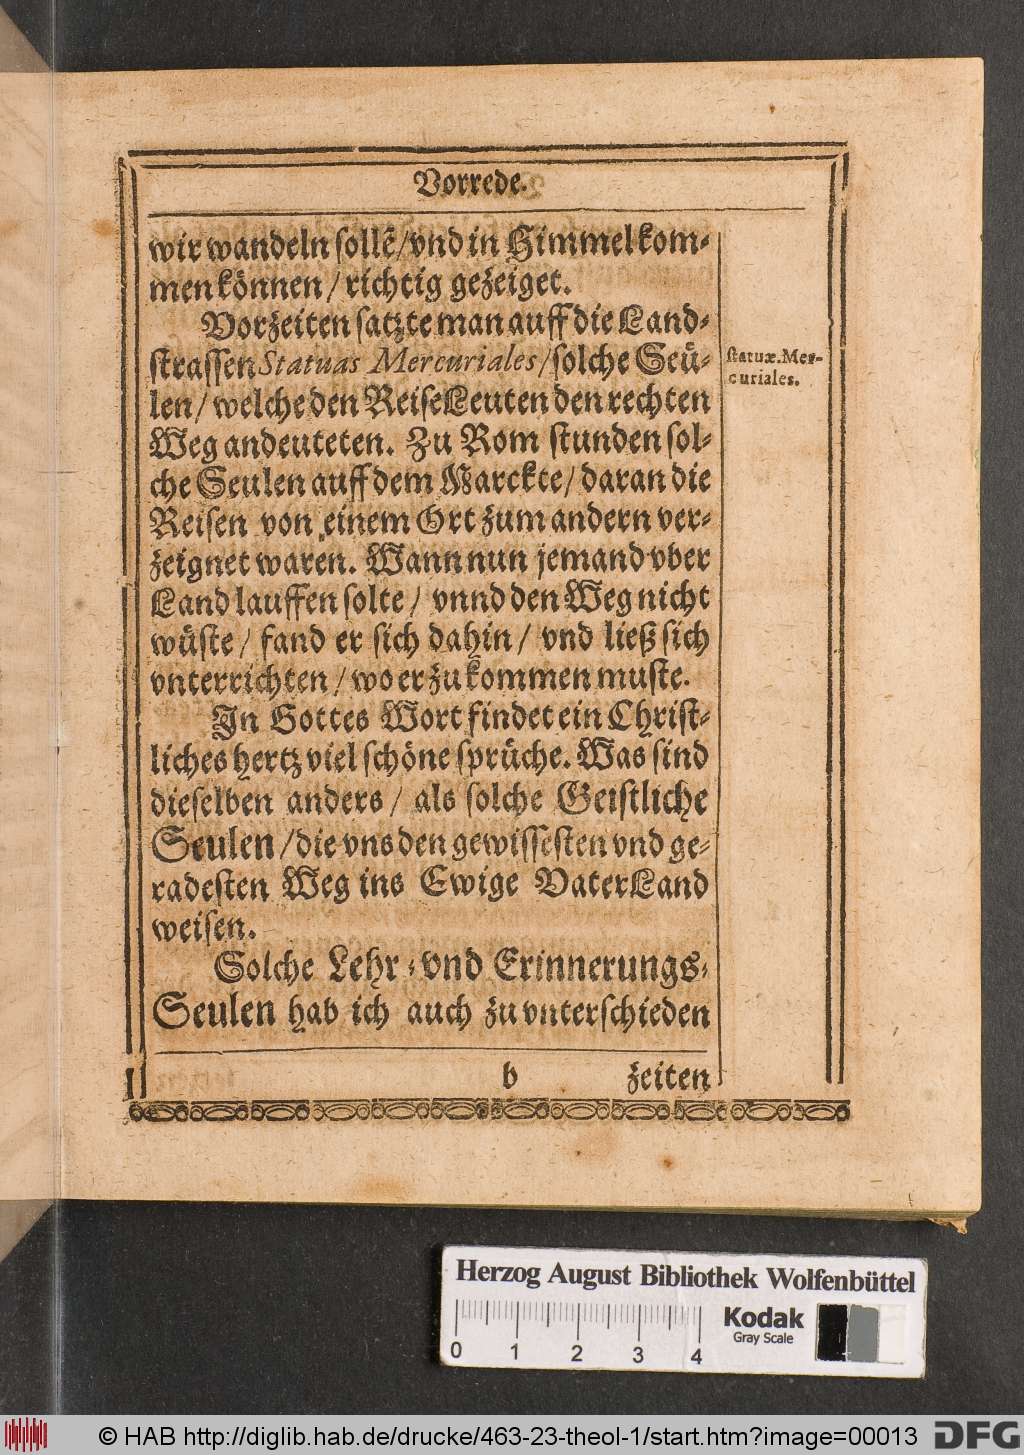 Vorrede.
wir wandeln sollẽ/vnd in Himmel kom-
men können/ richtig gezeiget.
Vorzeiten satzte man auff die Land-
strassen Statuas Mercuriales/solche Seü-
statuæ. Mer-
curiales.
len/ welche den ReiseLeuten den rechten
Weg andeuteten. Zu Rom stunden sol-
che Seulen auff dem Marckte/ daran die
Reisen von einem Ort zum andern ver-
zeignet waren. Wann nun jemand vber
Land lauffen solte/ vnnd den Weg nicht
wüste/ fand er sich dahin/ vnd ließ sich
vnterrichten/ wo er zu kommen muste.
In Gottes Wort findet ein Christ-
liches hertz viel schöne sprüche. Was sind
dieselben anders/ als solche Geistliche
Seulen/die vns den gewissesten vnd ge-
radesten Weg ins Ewige VaterLand
weisen.
Solche Lehr- vnd Erinnerungs-
Seulen hab ich auch zu vnterschieden
b zeiten
Herzog August Bibliothek Wolfenbüttel
0 1 2 3 4
Kodak
Gray Scale
© HAB http://diglib.hab.de/drucke/463-23-theol-1/start.htm?image=00013
DFG